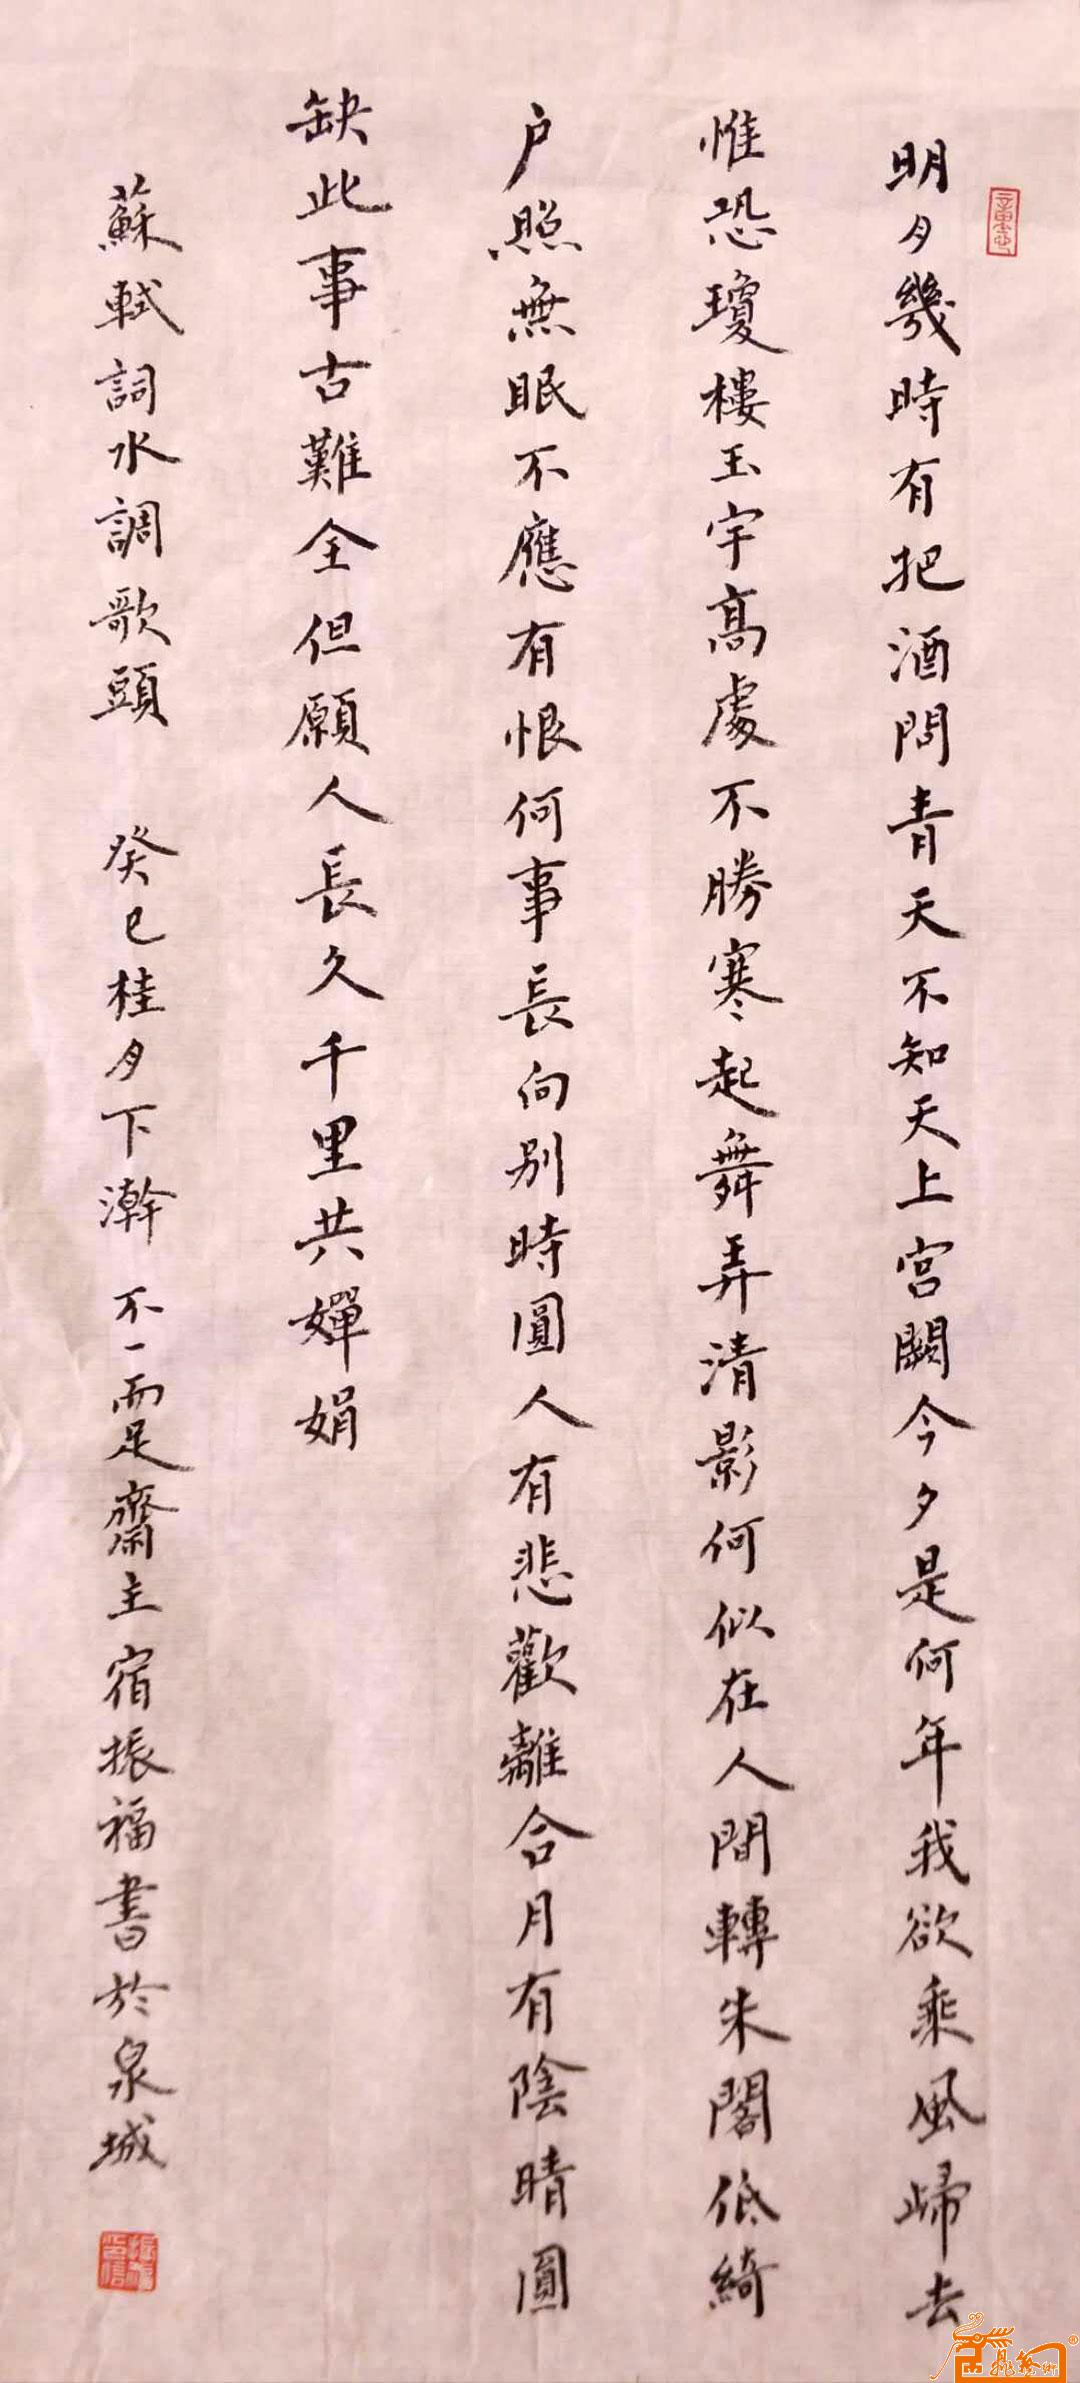 明月幾時有把酒問青天不知天上宮闕今夕是何年我欲乘風歸去
惟恐瓊樓玉宇高處不勝寒起舞弄清影何似在人間轉朱閣低綺
户照無眠不應有恨何事長向别時圓人有悲歡離合月有陰晴圓
缺此事古難全但願人長久千里共嬋娟
蘇軾詞水調歌頭 癸巳桂月下澣 不一而足齋主宿振福書於泉城